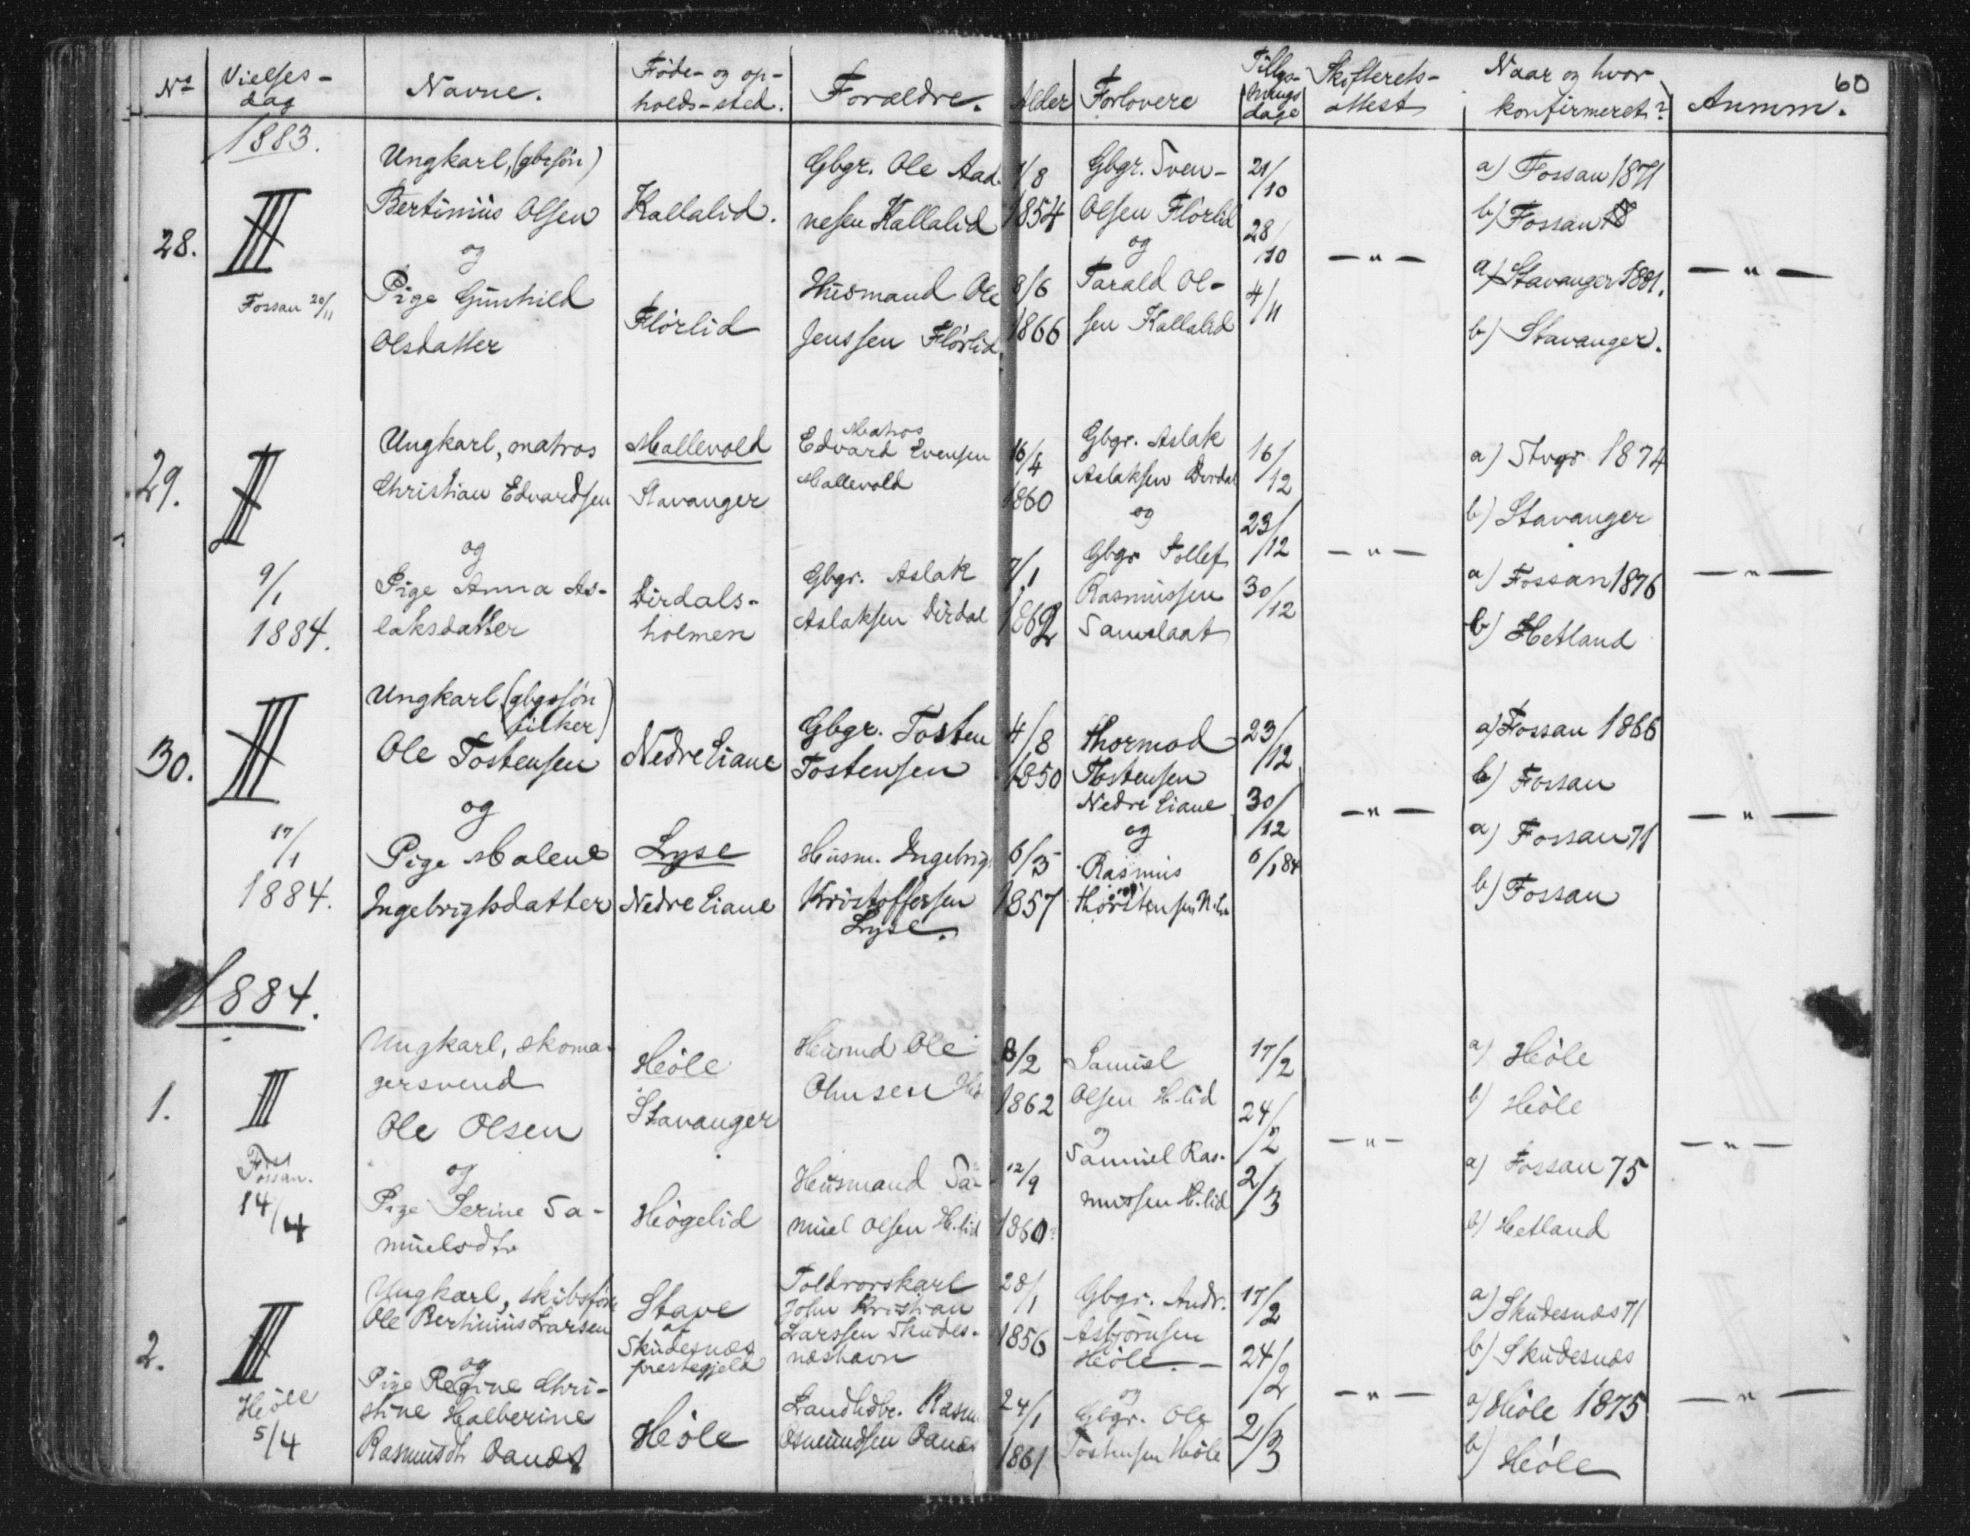 60
Nº
Vielses-
dag
Navne.
Føde- og op-
holds-sted.
Forældre.
Alder
Forlovere
Tillys-
nings
dage
Skifterets-
attest
Naar og hvor
konfirmeret?
Anmm.
1883.
28.
III
Fossan 20/11
Ungkarl, (gbrsøn)
Bertinius Olsen
og
Pige Gunhild
Olsdatter
Kallalid.
Flörlid
Gbgr. Ole Aad-
nesen Kallalid
Husmand Ole
Jenssen Flörlid.
7/8
1854
8/6
1866
Gbgr. Sven-
Olsen Flörlid
og
Tarald Ol-
sen Kallalid
21/10
28/10
4/11
— " —
a) Fossan 1871
b) Fossan
a) Stavanger 1881.
b) Stavanger.
— " —
29.
III
9/1
1884.
Ungkarl, matros
Christian Edvardsen
og
Pige Anna As-
laksdatter
Mallevold
Stavanger
Dirdals-
holmen
Matros
Edvard Evensen
Mallevold
Gbgr. Aslak
Aslaksen Dirdal
16/4
1860
7/1
1862
Gbgr. Aslak
Aslaksen Dirdal
og
Gbgr Tollef
Rasmussen
16/12
23/12
30/12
— " —
a) Stvgr 1874
b) Stavanger
a) Fossan 1876
b) Hetland
— " —
30.
III
17/1
1884.
Ungkarl (gbgssøn
fisker)
Ole Tostensen
og
Pige Malene
Ingebrigtsdatter
Nedre Eiane
Lyse
Nedre Eiane
Gbgr. Tosten
Tostensen
Husm. Ingebrigt
Kristoffersen
Lyse.
4/8
1850
6/3
1857
Thormod
Tostensen
Nedre Eiane
og
Rasmus
Thorstensen N.
23/12
30/12
6/1 84
— " —
a) Fossan 1866
b) Fossan
a) Fossan 71
b) Fossan
— " —
1884.
1.
III
Fossan.
14/4
Ungkarl, skoma-
gersvend
Ole Olsen
og
Pige Serine Sa-
muelsdtr
Høle
Stavanger
Høgelid
Husmd Ole
Ohnsen
Husmand Sa-
muel Olsen H.lid
8/2
1862
12/9
1860
Samuel
Olsen H.lid
og
Samuel Ras-
mussen H.lid
17/2
24/2
2/3
— " —
a) Høle
b) Høle
a) Fossan 75
b) Hetland
— " —
2.
III
Høle
5/4
Ungkarl, skibsfører
Ole Bertinius Larsen
og
Pige Regine Chri-
stine Halberine
Rasmusdtr Oanes
Stave
af
Skudesnæs
prestegjeld
Høle
Toldrorskarl
John Kristian
Larssen Skudes-
næshavn
Landhdbr. Rasm
Osmundsen Oanes
28/1
1856
24/1
1861
Gbgr. Andr.
Asbjörnsen
Høle. —
og
Gbgr. Ole
Tostensen Høle
17/2
24/2
2/3
— " —
a) Skudesnæs 71
b) Skudesnæs
a) Høle 1875
b) Høle
— " —